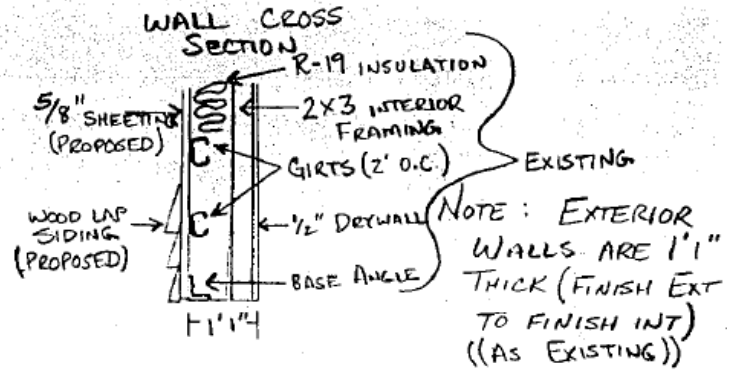 WALL CROSS
SECTION
R-19 INSULATION
5/8" SHEETING
(PROPOSED)
2X3 INTERIOR
FRAMING
GIRTS (2' O.C.)
EXISTING
WOOD LAP
SIDING
(PROPOSED)
1/2" DRYWALL
BASE ANGLE
1'1"
NOTE: EXTERIOR
WALLS ARE 1'1"
THICK (FINISH EXT
TO FINISH INT)
((AS EXISTING))